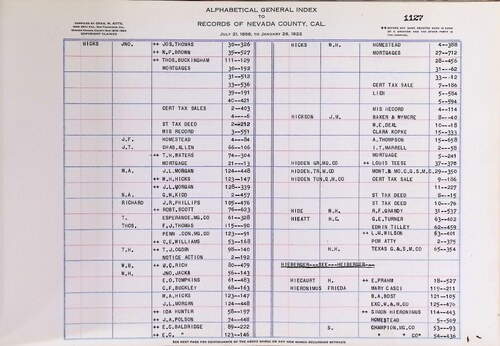 ALPHABETICAL GENERAL INDEX
TO
RECORDS OF NEVADA COUNTY, CAL.
JULY 21, 1856, TO JANUARY 26, 1922
1127
COMPILED BY CHAS. W. KITTS,
COPYRIGHT CLAIMED
HICKS JNO. ++ JOS,THOMAS 30--326 HICKS W.H. HOMESTEAD 4--388
++ W.F.BROWN 35--527 MORTGAGES 27--712
++ THOS,BUCKINGHAM 111--129 28--456
MORTGAGES 30--192 31--62
31--512 33--12
33--536 CERT TAX SALE 7--186
39--191 LIEN 5--584
40--421 5--594
CERT TAX SALES 2--403 MIS RECORD 4--114
4---6 HICKSON J.W. BAKEN & WYMORE 8--40
ST TAX DEED 2--212 W.E.DEAL 10--18
MIS RECORD 3--551 CLARA KOPKE 15--333
J.F. HOMESTEAD 4--84 A.THOMPSON 15--658
J.T. CHAS,ALLEN 66--106 I.T.MARRELL 2--58
++ T.H.WATERS 74--304 MORTGAGE 5--241
MORTGAGE 21--13 HIDDEN GR,MG,CO ++ LOUIS TEESE 37--370
W.A. J.L.MORGAN 124--448 HIDDEN,TR,M.CO MONT.& MO.C.G.S.M.C. 29--350
++ W.H.HICKS 123--147 HIDDEN TUN,Q,M,CO CERT TAX SALE 9--186
++ J.L.MORGAN 128--339 11--227
N.A. G.W.KIDD 2--457 ST TAX DEED 8--15
RICHARD J.R.PHILLIPS 105--476 ST TAX DEED 10--76
++ ROBT,SCOTT 76--623 HIDE W.H. R.F.GRANDY 31--537
T. ESPERANCE,MG,CO 61--328 HIEATT H.C. G.E.TURNER 63--402
THOS, F.J.THOMAS 115--90 EDWIN TILLEY 62--459
PENN.CON.MG,CO 123--91 ++ L.M.WILSON 63--401
++ C.E.WILLIAMS 53--168 POW ATTY 2--375
T.H. ++ T.J.ODGIN 98--140 H.H. TEXAS G.& S.M,CO 65--354
NOTICE ACTION 2--192
W.B. ++ W.Q.RICH 80--479 HIEBERGER---SEE---HEIBERGER---
W.H. JNO,JACKA 56--143
E.O.TOMPKINS 61--483 HIECAURT H. ++ E.PRAHM 18--527
G.F.BUCKLEY 68--163 HIERONIMUS FRIEDA MARY CASCI 119--211
W.A.HICKS 123--147 W.A.BOST 121--105
J.L.MORGAN 124--448 EXC,W.& M,CO 125--479
++ IDA HUNTER 58--197 ++ SIMON HIERONIMUS 114--443
++ J.A.POLSON 74--448 HOMESTEAD 5--569
++ E.E.BALDRIDGE 89--222 S. CHAMPION,MG,CO 53--93
++ E.C. " 123--146 " " CO" 54--436